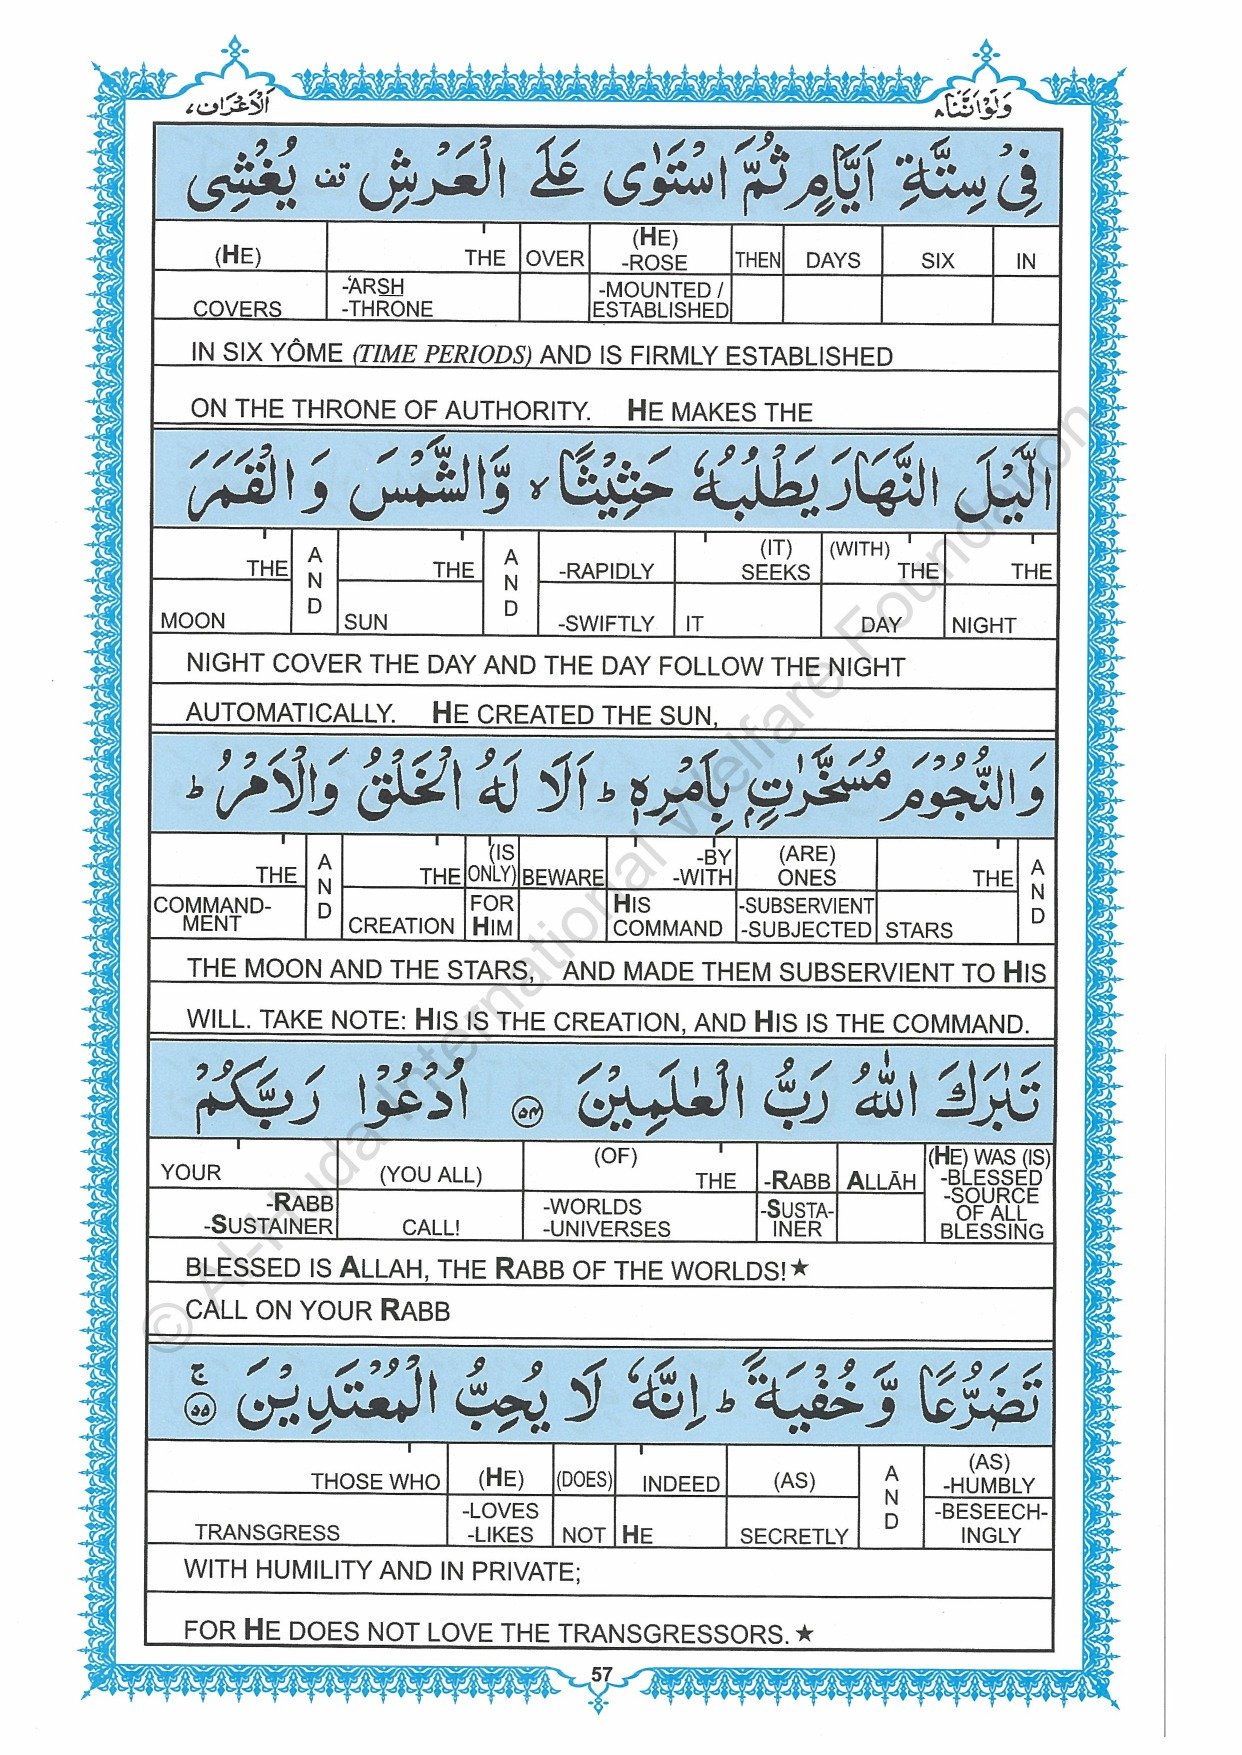 وَلَوْ اَنَّنَا ٨ اَلْاَعْرَاف ٧
فِیْ سِتَّةِ اَیَّامٍ ثُمَّ اسْتَوٰی عَلَی الْعَرْشِ قف یُغْشِی
(HE) THE OVER (HE) -ROSE THEN DAYS SIX IN
COVERS -'ARSH -THRONE -MOUNTED / ESTABLISHED
IN SIX YÔME (TIME PERIODS) AND IS FIRMLY ESTABLISHED
ON THE THRONE OF AUTHORITY. HE MAKES THE
الَّیْلَ النَّهَارَ یَطْلُبُهٗ حَثِیْثًا ۙ وَّالشَّمْسَ وَ الْقَمَرَ
THE AND THE AND -RAPIDLY (IT) SEEKS (WITH) THE THE
MOON SUN -SWIFTLY IT DAY NIGHT
NIGHT COVER THE DAY AND THE DAY FOLLOW THE NIGHT
AUTOMATICALLY. HE CREATED THE SUN,
وَ النُّجُوْمَ مُسَخَّرٰتٍۭ بِاَمْرِهٖ ؕ اَلَا لَهُ الْخَلْقُ وَالْاَمْرُ ؕ
THE AND THE (IS ONLY) BEWARE -BY -WITH (ARE) ONES THE AND
COMMAND-MENT CREATION FOR HIM HIS COMMAND -SUBSERVIENT -SUBJECTED STARS
THE MOON AND THE STARS, AND MADE THEM SUBSERVIENT TO HIS
WILL. TAKE NOTE: HIS IS THE CREATION, AND HIS IS THE COMMAND.
تَبٰرَكَ اللّٰهُ رَبُّ الْعٰلَمِیْنَ ۵۴ اُدْعُوْا رَبَّكُمْ
YOUR (YOU ALL) (OF) THE -RABB ALLĀH (HE) WAS (IS) -BLESSED -SOURCE OF ALL BLESSING
-RABB -SUSTAINER CALL! -WORLDS -UNIVERSES -SUSTA-INER
BLESSED IS ALLAH, THE RABB OF THE WORLDS!★
CALL ON YOUR RABB
تَضَرُّعًا وَّ خُفْیَةً ؕ اِنَّهٗ لَا یُحِبُّ الْمُعْتَدِیْنَ ۵۵ ج
THOSE WHO (HE) (DOES) INDEED (AS) AND (AS) -HUMBLY
TRANSGRESS -LOVES -LIKES NOT HE SECRETLY -BESEECH-INGLY
WITH HUMILITY AND IN PRIVATE;
FOR HE DOES NOT LOVE THE TRANSGRESSORS.★
57
© Al-Huda International Welfare Foundation